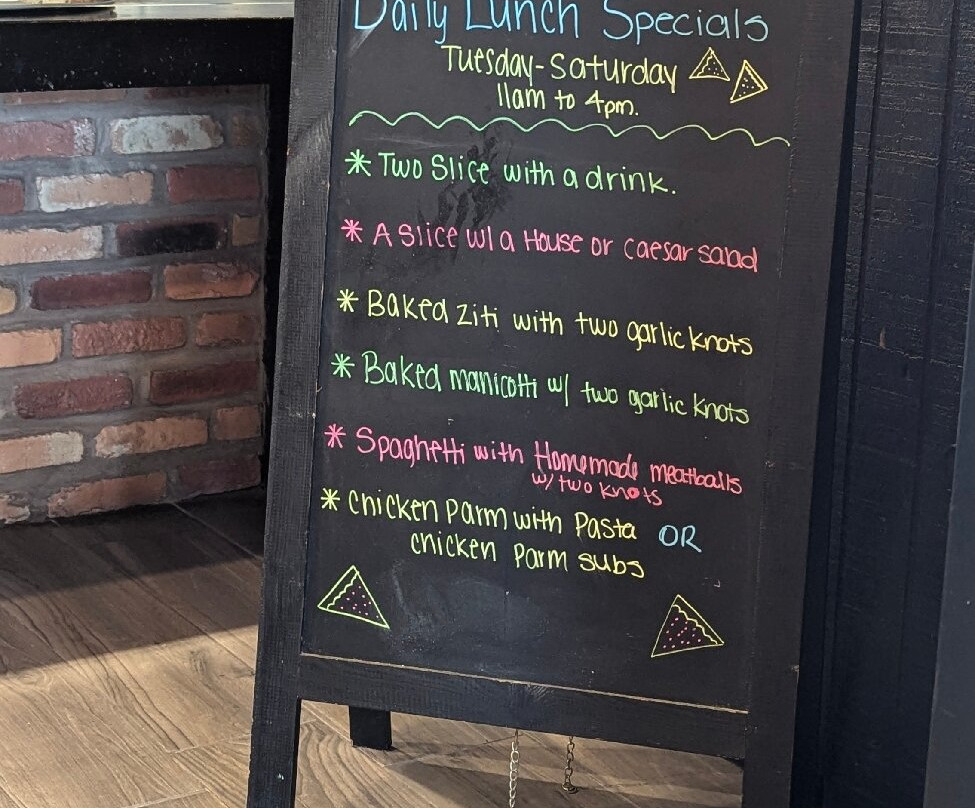 Daily Lunch Specials
Tuesday-Saturday
11am to 4pm.
* Two Slice with a drink.
* A Slice w/ a House or caesar salad
* Baked ziti with two garlic knots
* Baked manicotti w/ two garlic knots
* Spaghetti with Homemade meatballs
w/ two knots
* chicken Parm with Pasta OR
chicken Parm subs